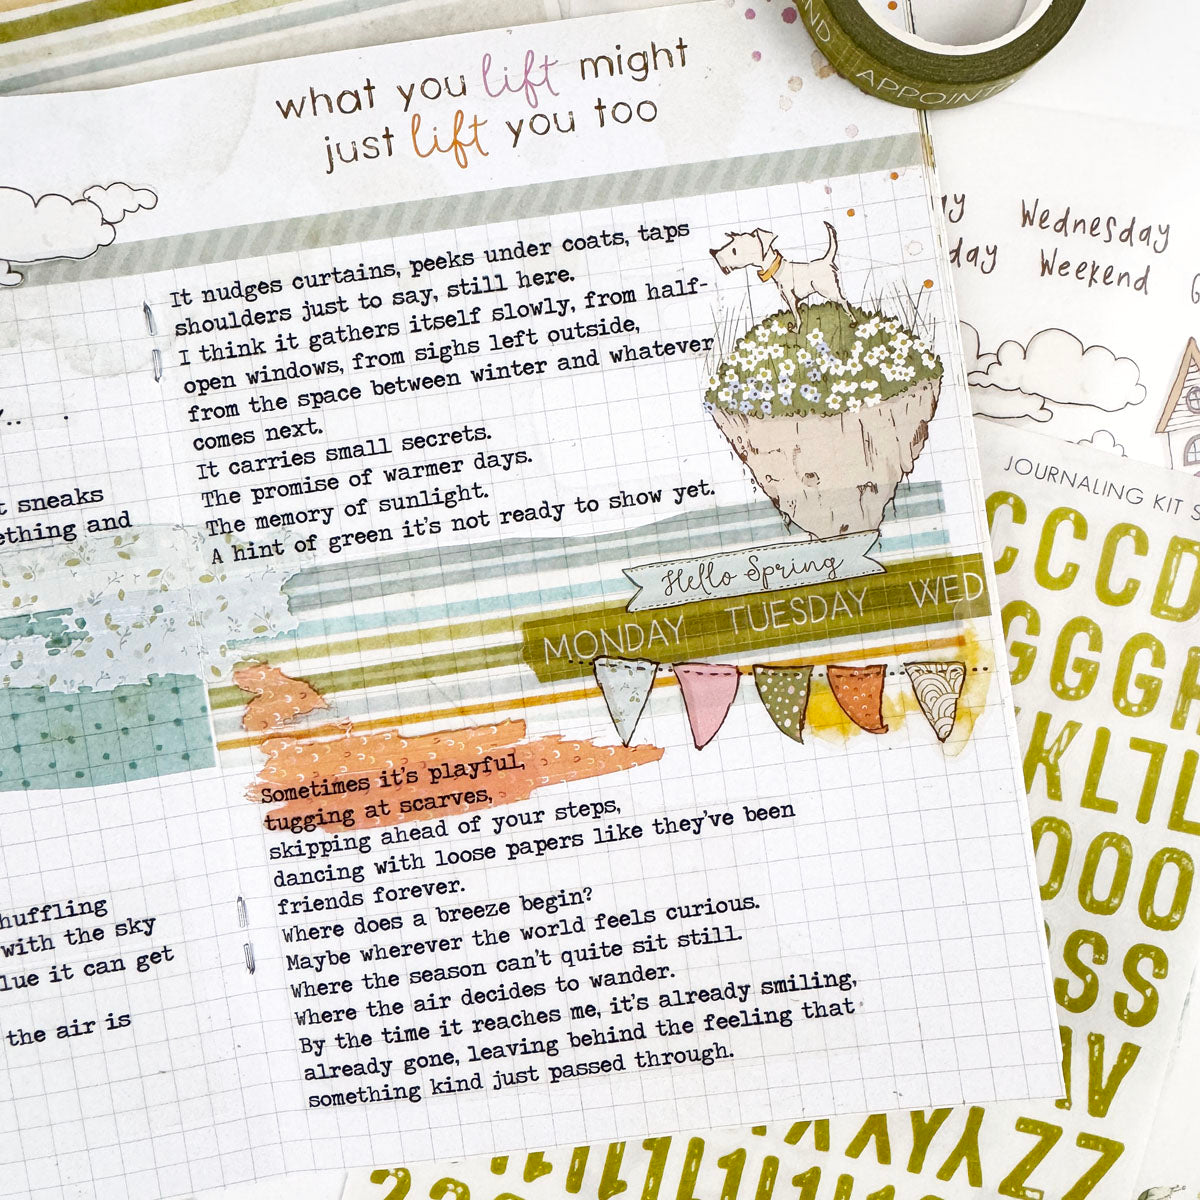 what you lift might
just lift you too
It nudges curtains, peeks under coats, taps
shoulders just to say, still here.
I think it gathers itself slowly, from half-
open windows, from sighs left outside,
from the space between winter and whatever
comes next.
It carries small secrets.
The promise of warmer days.
The memory of sunlight.
A hint of green it's not ready to show yet.
Hello Spring
MONDAY TUESDAY WED
Sometimes it's playful,
tugging at scarves,
skipping ahead of your steps,
dancing with loose papers like they've been
friends forever.
Where does a breeze begin?
Maybe wherever the world feels curious.
Where the season can't quite sit still.
Where the air decides to wander.
By the time it reaches me, it's already smiling,
already gone, leaving behind the feeling that
something kind just passed through.
sneaks
ething and
huffling
with the sky
lue it can get
the air is
APPOINT
Wednesday
day Weekend
JOURNALING KIT S
CCCD
GGGG
KLL
OOO
SS